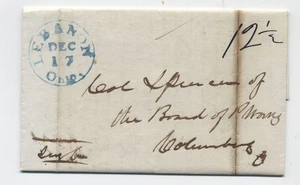 LEBANON
DEC
17
Ohio.
12½
Col Spencer of
the Board of P. Works
Columbus